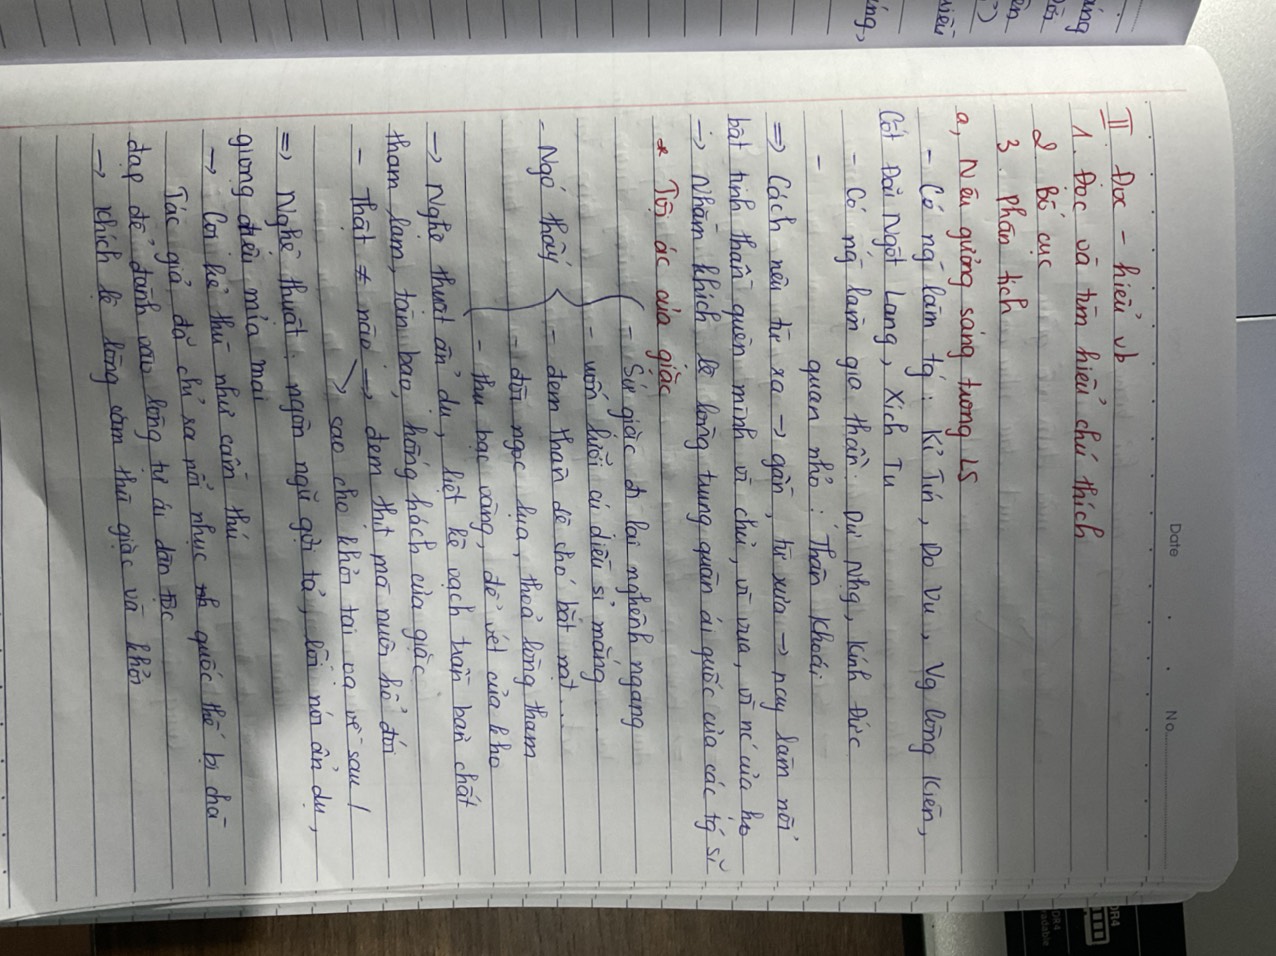 Date . . No.
II. Đọc – hiểu vb
1. Đọc và tìm hiểu chú thích
2. Bố cục
3. Phân tích
a, Nêu gương sáng trong LS
- Có ng làm tg : Kỉ Tín, Do Vu, Vg Công Kiên,
Cốt Đãi Ngột Lang, Xích Tu
- Có ng làm gia thần : Dự Nhg, Kính Đức
- quan nhỏ : Thân Khoái
=> Cách nêu từ xa -> gần, từ xưa -> nay làm nổi
bật tinh thần quên mình vì chủ, vì vua, vì nc của họ
-> Nhằm khích lệ lòng trung quân ái quốc của các tg sĩ
* Tội ác của giặc
- Sứ giặc đi lại nghênh ngang
- uốn lưỡi cú diều sỉ mắng ...
- Ngó thấy
- đem thân dê chó bắt nạt ...
- đòi ngọc lụa, thoả lòng tham
- thu bạc vàng, để vét của kho
-> Nghệ thuật ẩn dụ, liệt kê vạch trần bản chất
tham lam, tàn bạo, hống hách của giặc
- Thật ≠ nào -> đem thịt mà nuôi hổ đói
-> sao cho khỏi tai vạ về sau !
=> Nghệ thuật : ngôn ngữ gợi tả, lối nói ẩn dụ,
giọng điệu mỉa mai
-> Coi kẻ thù như cầm thú
Tác giả đã chỉ ra nỗi nhục quốc thể bị chà
đạp để đánh vào lòng tự ái dân tộc
-> Khích lệ lòng căm thù giặc và khơi
DR4
DDR4
ấng,